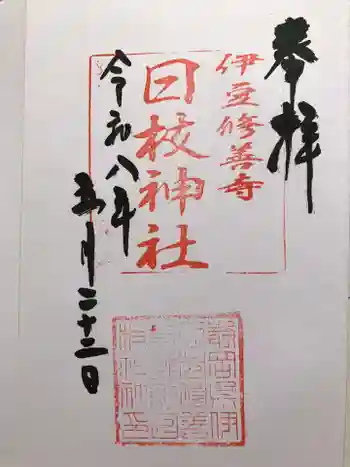 奉拝
伊豆修善寺
日枝神社
令和八年
五月二十二日